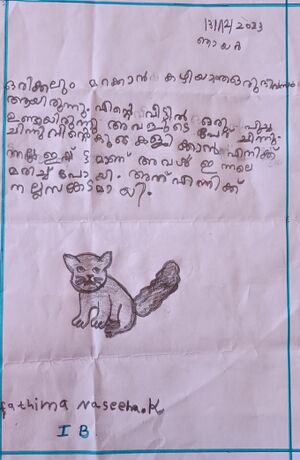 13/12/2023
ഞായർ
ഒരിക്കലും മറക്കാൻ കഴിയാത്ത ഒരു ദിവസം
ആയിരുന്നു. എന്റെ വീട്ടിൽ ഒരു പൂച്ച
ഉണ്ടായിരുന്നു അവളുടെ പേര് ചിന്നു.
ചിന്നുവിന്റെ കൂടെ കളിക്കാൻ എനിക്ക്
നല്ല ഇഷ്ട്ടമാണ് അവൾ ഇന്നലെ
മരിച്ച് പോയി. അത് എന്നിക്ക്
നല്ല സങ്കടമായി.
fathima Naseeha.K
I B